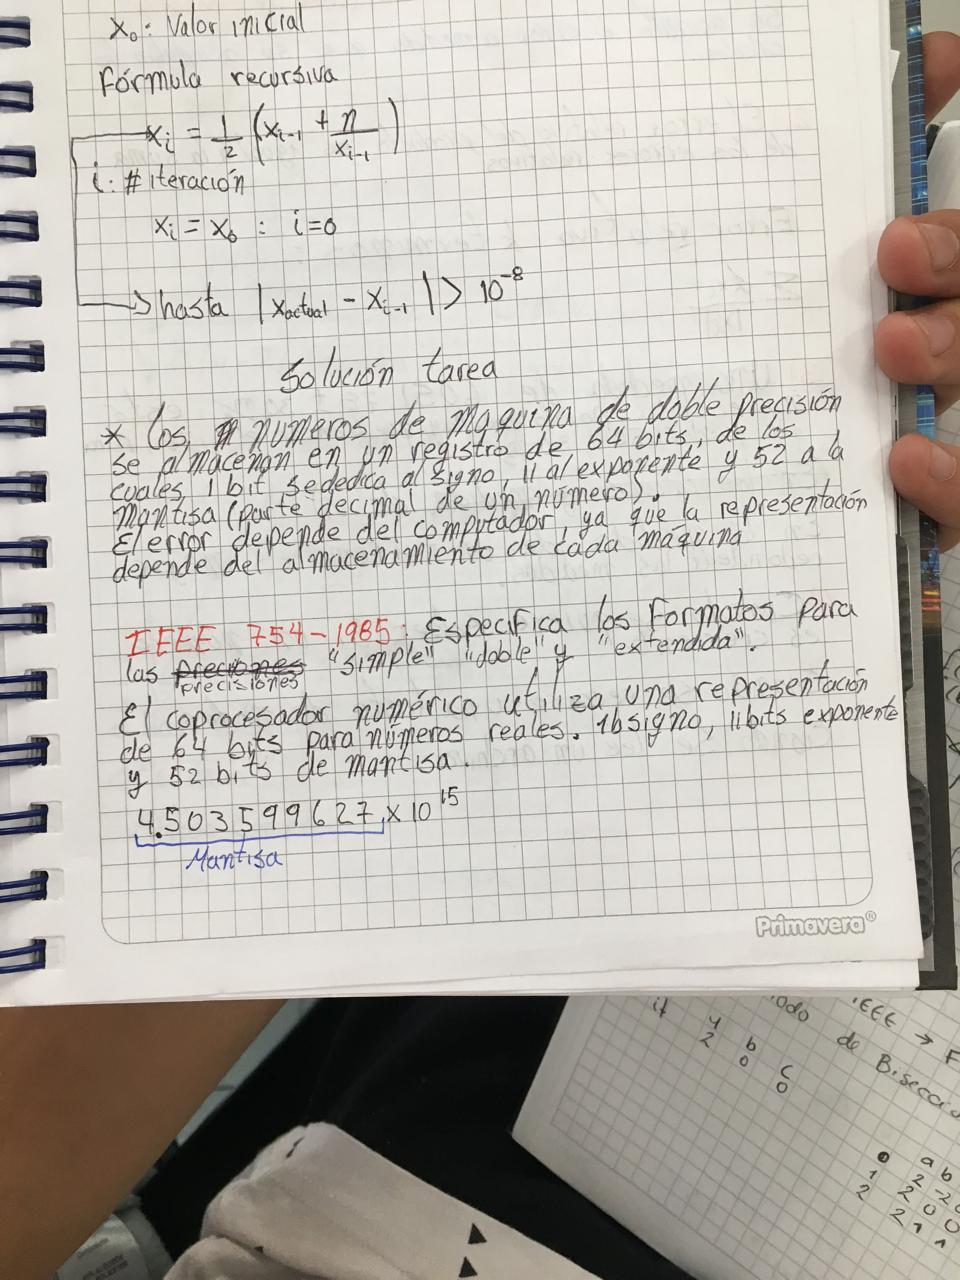 x₀: Valor inicial
Fórmula recursiva
xᵢ = 1/2 (xᵢ₋₁ + n/xᵢ₋₁)
i: # iteración
xᵢ = x₀ : i=0
hasta |xactual - xᵢ₋₁| > 10⁻⁸
Solución tarea
* Los numeros de maquina de doble precisión
se almacenan en un registro de 64 bits, de los
cuales, 1 bit se dedica al signo, 11 al exponente y 52 a la
mantisa (parte decimal de un número).
El error depende del computador, ya que la representación
depende del almacenamiento de cada maquina
IEEE 754-1985: Especifica los Formatos para
las precisiones "simple" "doble" y "extendida".
El coprocesador numérico utiliza una representación
de 64 bits para números reales. 1b signo, 11 bits exponente
y 52 bits de mantisa.
4.503599627 x 10¹⁵
Mantisa
Primavera®
IEEE → F
odo de Bisecci
it y b c
2 0 0
a b
1 2 -2
2 2 0 0
2 1 1